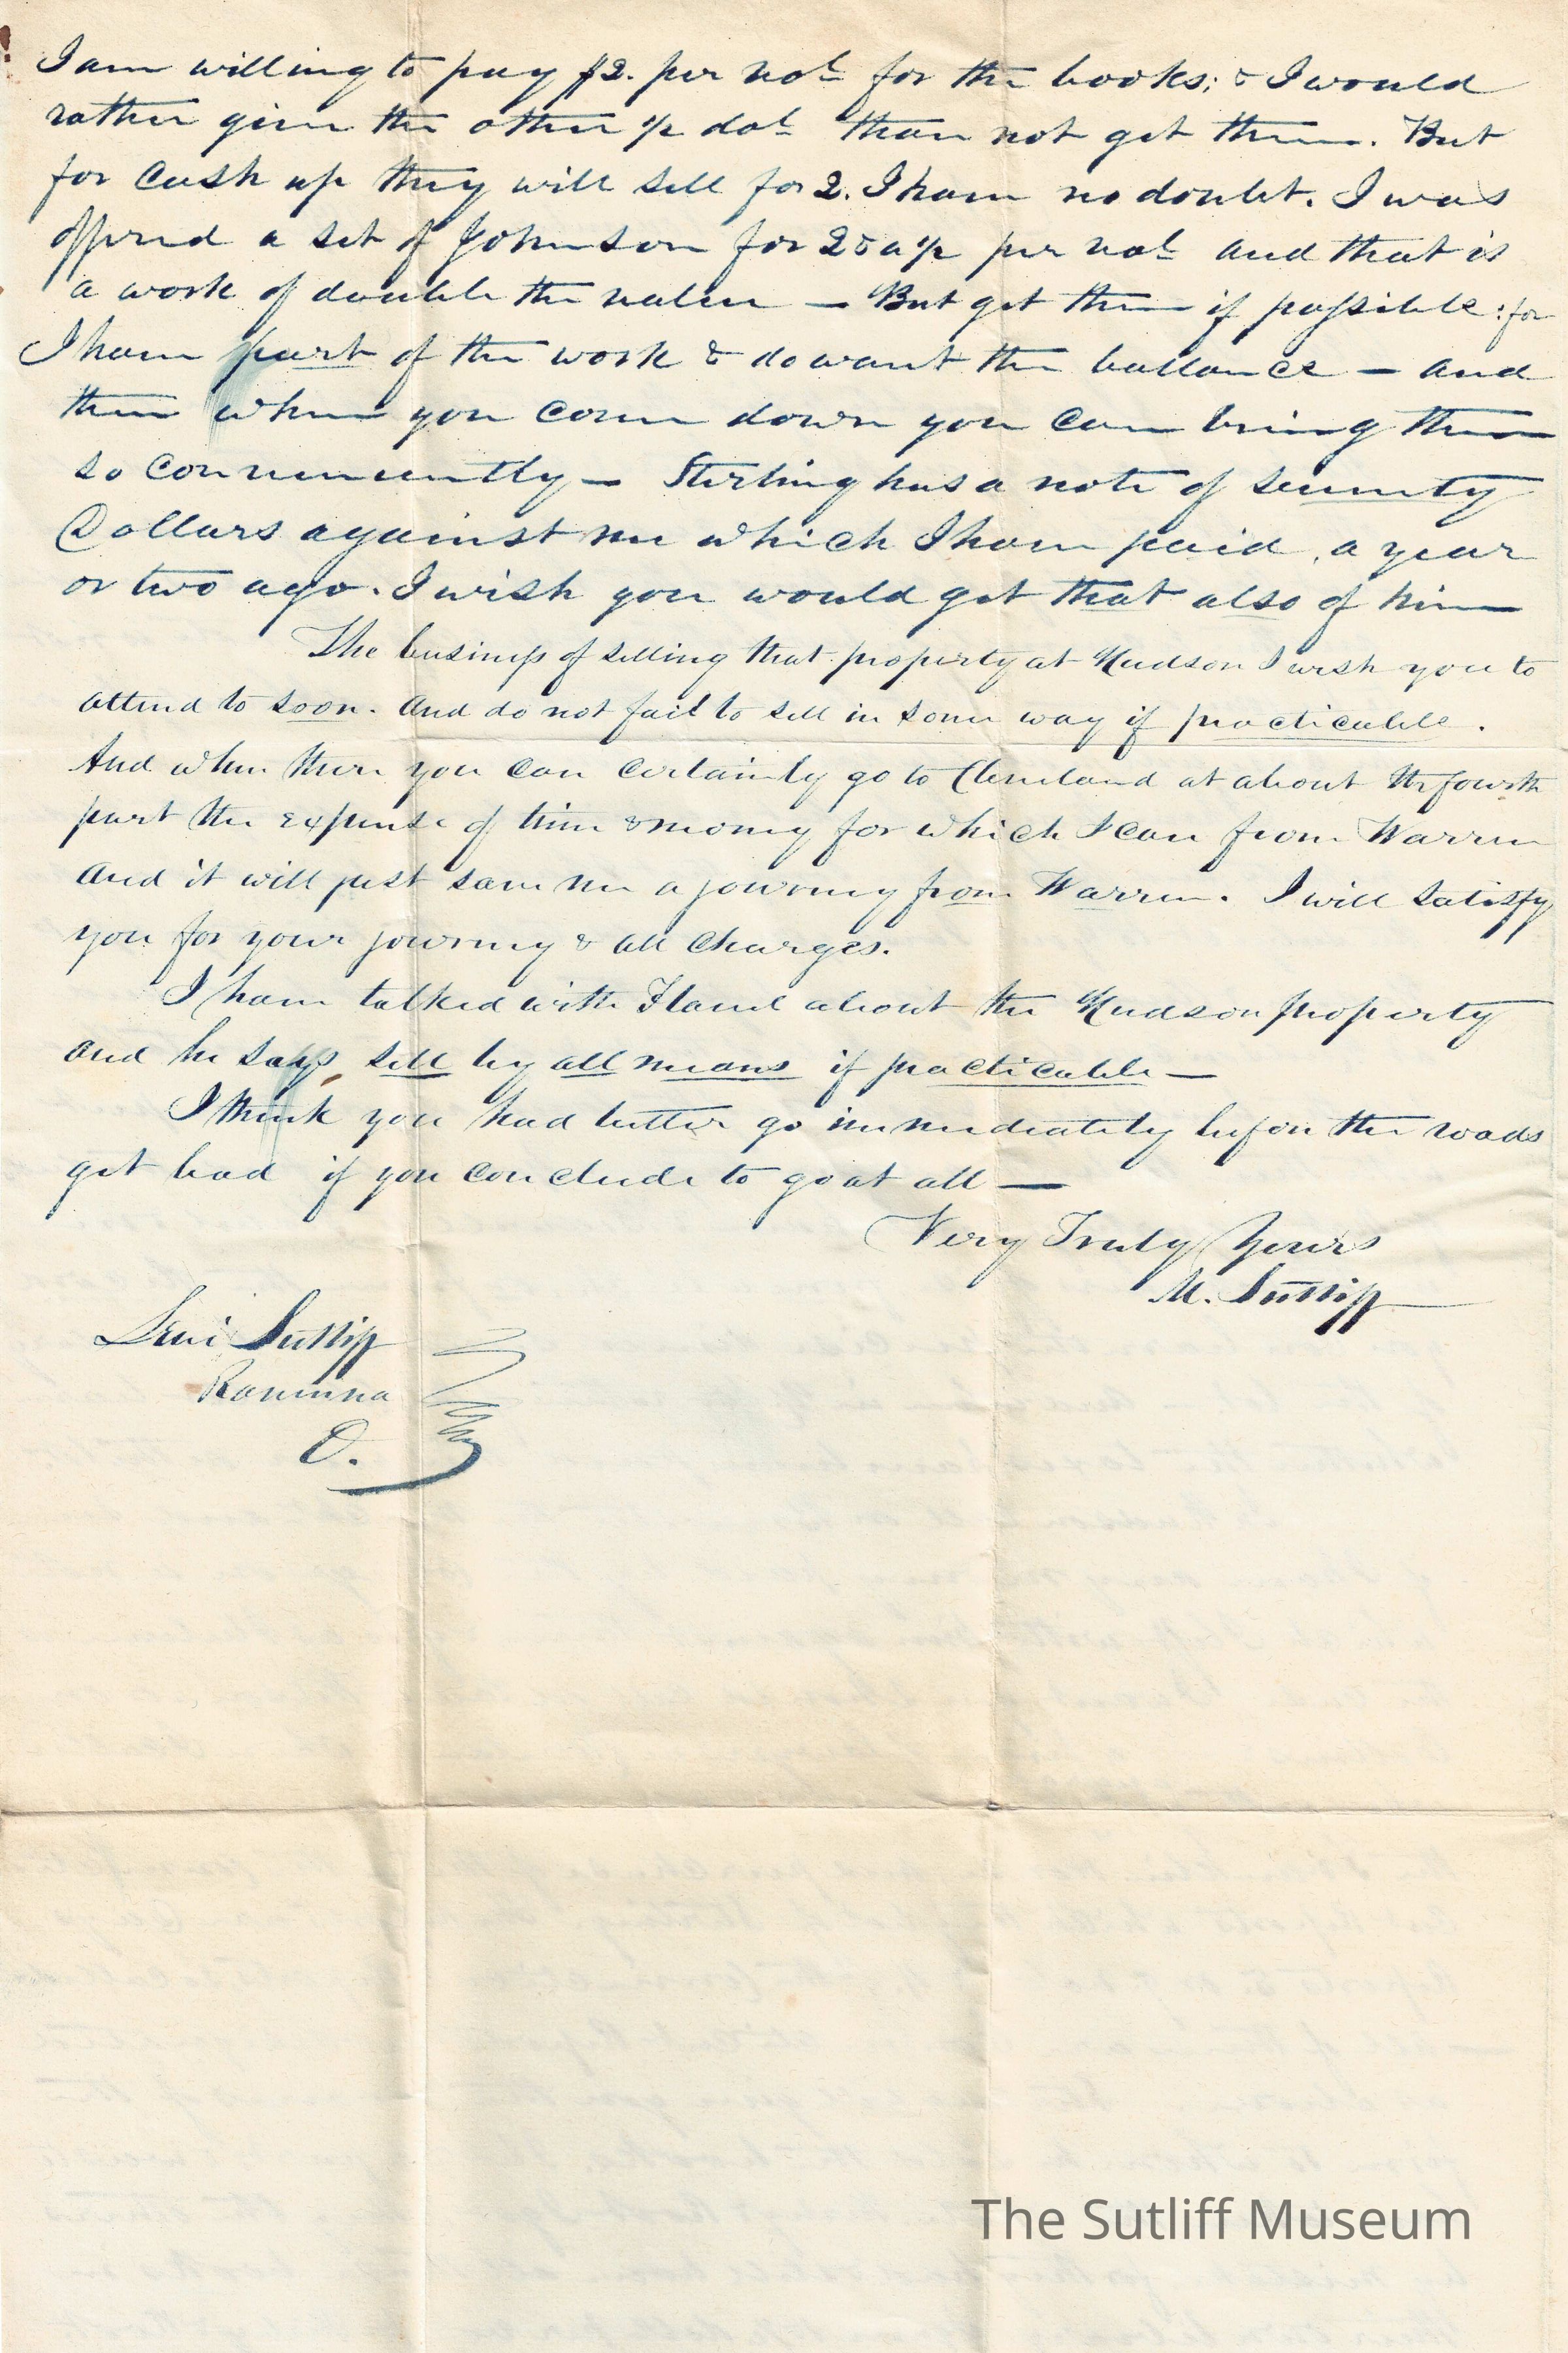 I am willing to pay $2. per vol. for the books; & I would
rather give the other ½ dol. than not get them. But
for Cash up they will sell for 2. I have no doubt. I was
offered a set of Johnson for 2 & a ½ per vol. and that is
a work of double the value — But get them if possible: for
I have part of the work & do want the ballance — and
then when you come down you can bring them
so conveniently — Sterling has a note of seventy
Dollars against me which I have paid, a year
or two ago. I wish you would get that also of him
The business of selling that property at Hudson I wish you to
attend to soon. And do not fail to sell in some way if practicable.
And when there you can certainly go to Cleveland at about the fourth
part the expense of time & money for which I can from Warren
And it will just save me a journey from Warren. I will satisfy
you for your journey & all charges.
I have talked with about the Hudson property
and he says sell by all means if practicable —
I think you had better go immediately before the roads
get bad if you conclude to go at all —
Very Truly Yours
M. Sutliff
Levi Sutliff
Ravenna
O.
The Sutliff Museum